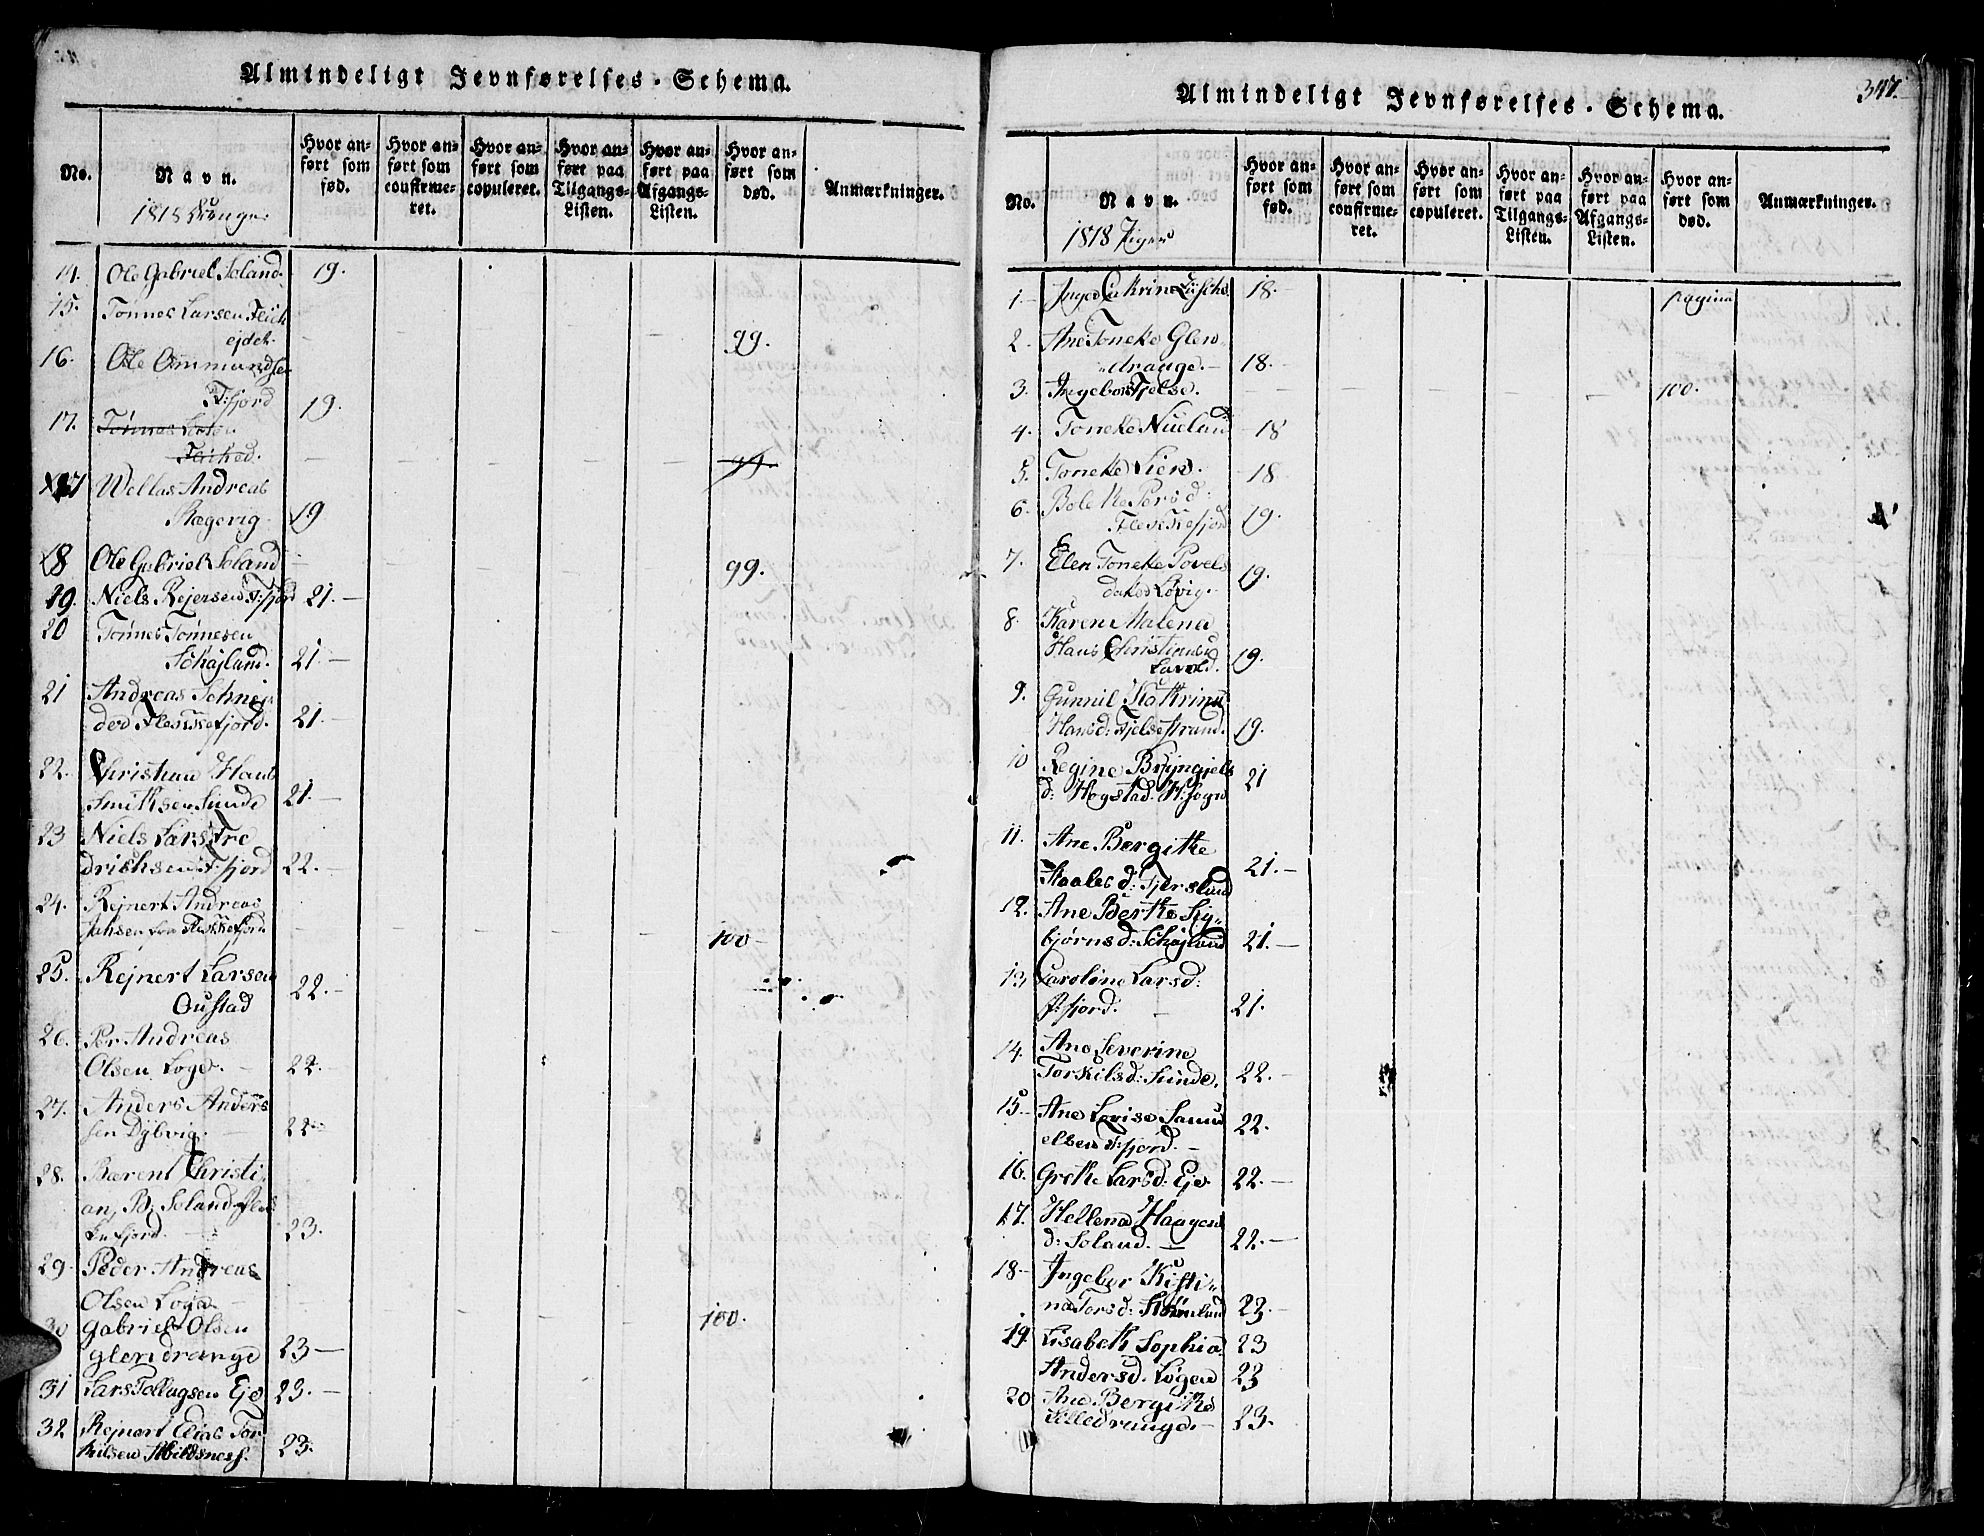 Almindeligt Jevnførelses-Schema.
No.
Navn.
1818 Drenge.
Hvor anført som fød.
Hvor anført som confirmeret.
Hvor anført som copuleret.
Hvor anført paa Tilgangs-Listen.
Hvor anført paa Afgangs-Listen.
Hvor anført som død.
Anmærkninger.
14. Ole Gabriel Soland. 19.
15. Tønnes Larsen
99.
16. Ole Ommundsen
F:fjord 19.
17. Tønnes
99.
17 Andreas
Rægevig 19
18 Ole Gabriel Soland 99.
19. Niels Rejersen F:fjord 21.
20 Tønnes Tønnesen
21.
21 Andreas Schnei
der Flekkefjord. 21.
22. Christian Hans
Smithsen Sunde 21.
23 Niels Lars Fre
drichsen F:fjord 22.
24. Rejnert Andreas
Flekkefjord 100
25. Rejnert Larsen
Oustad 22.
26. Per Andreas
Olsen Loge. 22.
27. Anders Anders
sen Dybvig. 22
28. Bærent Christi
an, B: Soland Flek
kefjord. 23.
29. Peder Andreas
Olsen Loga
100.
30 Gabriel Olsen
Glendrange 23
31 Lars Tollagsen Eje 23.
32 Rejnert Elias Tor
kilsen 23.
347.
Almindeligt Jevnførelses-Schema.
No.
Navn.
1818 Piger
Hvor anført som fød.
Hvor anført som confirmeret.
Hvor anført som copuleret.
Hvor anført paa Tilgangs-Listen.
Hvor anført paa Afgangs-Listen.
Hvor anført som død.
Anmærkninger.
1. Inger 18. pagina
2. Ane Toneke Glen
drange. 18.
3. Ingebor Fjelse. 100.
4. Toneke Nuland 18
5. Toneke Lien. 18
6. Bolethe Persd:
Flekkefjord 19.
7. Elen Toneke Povels
datter Løvig. 19.
8. Karen Malena
Hans Christians
19.
9. Gunnil Kathrine
Hansd: Fjelsestrand. 19.
10 Regine Bryngjels
d: Hogstad. H:sogn 21
11. Ane Bergithe
21.
12. Ane Berthe Sig
bjørnsd: 21.
13 Caroline Larsd:
F:fjord. 21.
14. Ane Severine
Torkilsd: Sunde. 22.
15. Ane Lovise Samu
elsen F:fjord. 22.
16. Grethe Larsd: Eje 22.
17. Hellena Haagen
d: Soland. 22.
18 Ingebor Kisti
na Torsd: 23.
19. Lisabeth Sophia 23
Andersd. Logen 23
20 Ane Bergithe
Lilledrange 23.